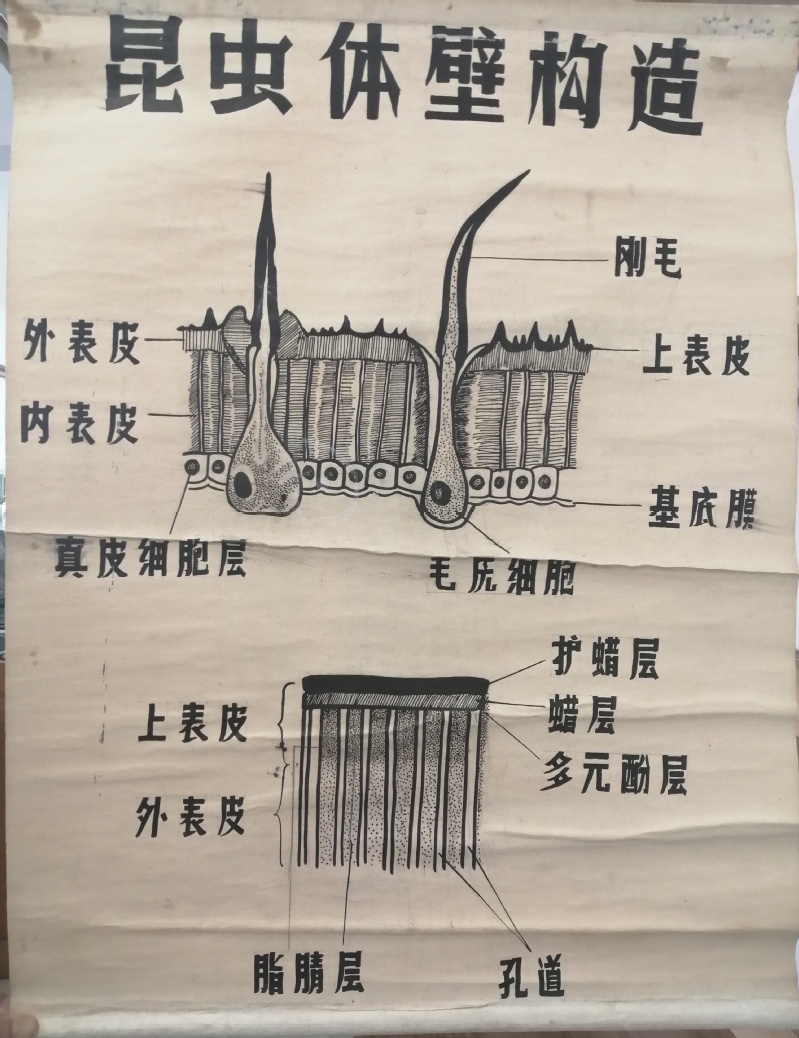 昆虫体壁构造
刚毛
外表皮
上表皮
内表皮
基底膜
真皮细胞层
毛原细胞
护蜡层
蜡层
上表皮
多元酚层
外表皮
脂腈层
孔道